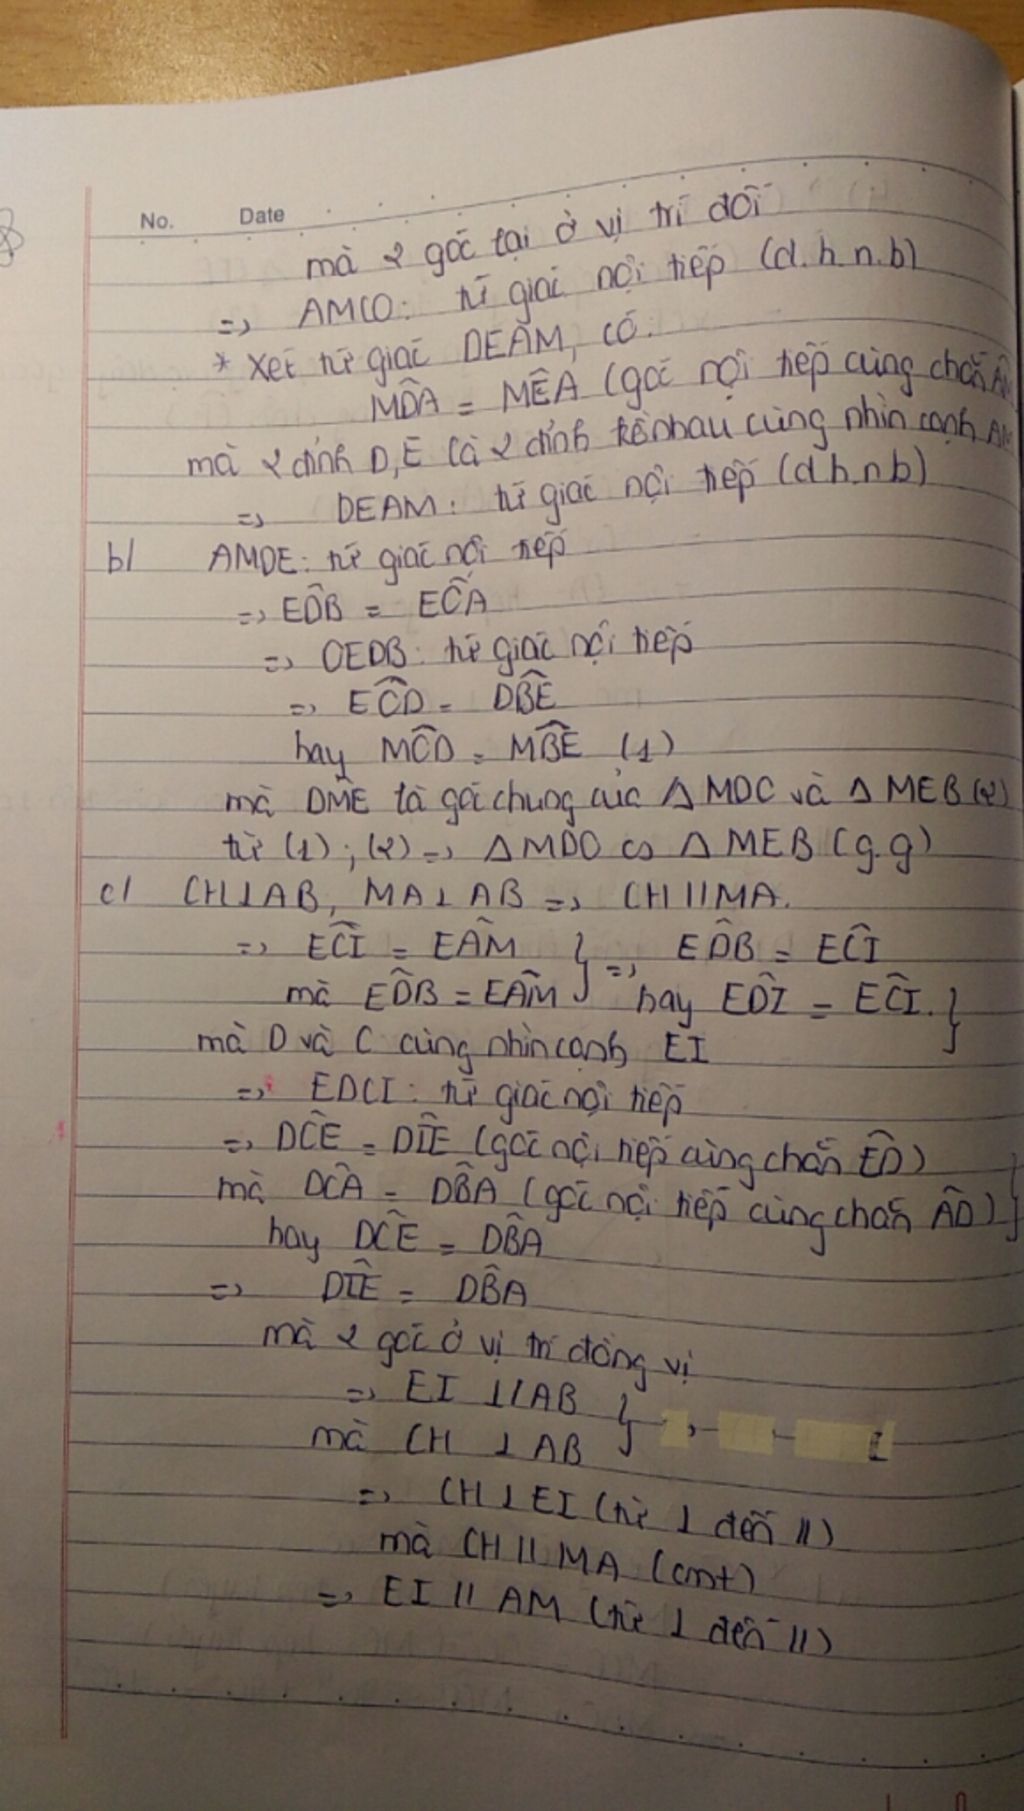 No. Date
mà 2 góc tại ở vị trí đối
=> AMCO: tứ giác nội tiếp (d.h.n.b)
* Xét tứ giác DEAM, có:
MD̂A = MÊA (góc nội tiếp cùng chắn
mà 2 đỉnh D, E là 2 đỉnh kề nhau cùng nhìn cạnh
=> DEAM: tứ giác nội tiếp (d.h.n.b)
b/ AMDE: tứ giác nội tiếp
=> ED̂B = EĈA
=> OEDB: tứ giác nội tiếp
=> EĈD = DB̂E
hay MĈD = MB̂E (1)
mà DM̂E là góc chung của △MDC và △MEB (2)
từ (1); (2) => △MDC ∽ △MEB (g.g)
c/ CH⊥AB, MA⊥AB => CH//MA.
=> EĈI = EÂM } => ED̂B = EĈI
mà ED̂B = EÂM } hay ED̂I = EĈI. }
mà D và C cùng nhìn cạnh EI
=> EDCI: tứ giác nội tiếp
=> DĈE = DÎE (góc nội tiếp cùng chắn ED̂)
mà DĈA = DB̂A (góc nội tiếp cùng chắn ÂD) }
hay DĈE = DB̂A
=> DÎE = DB̂A
mà 2 góc ở vị trí đồng vị
=> EI // AB }
mà CH ⊥ AB
=> CH⊥EI (từ ⊥ đến //)
mà CH // MA (cmt)
=> EI // AM (từ ⊥ đến //)